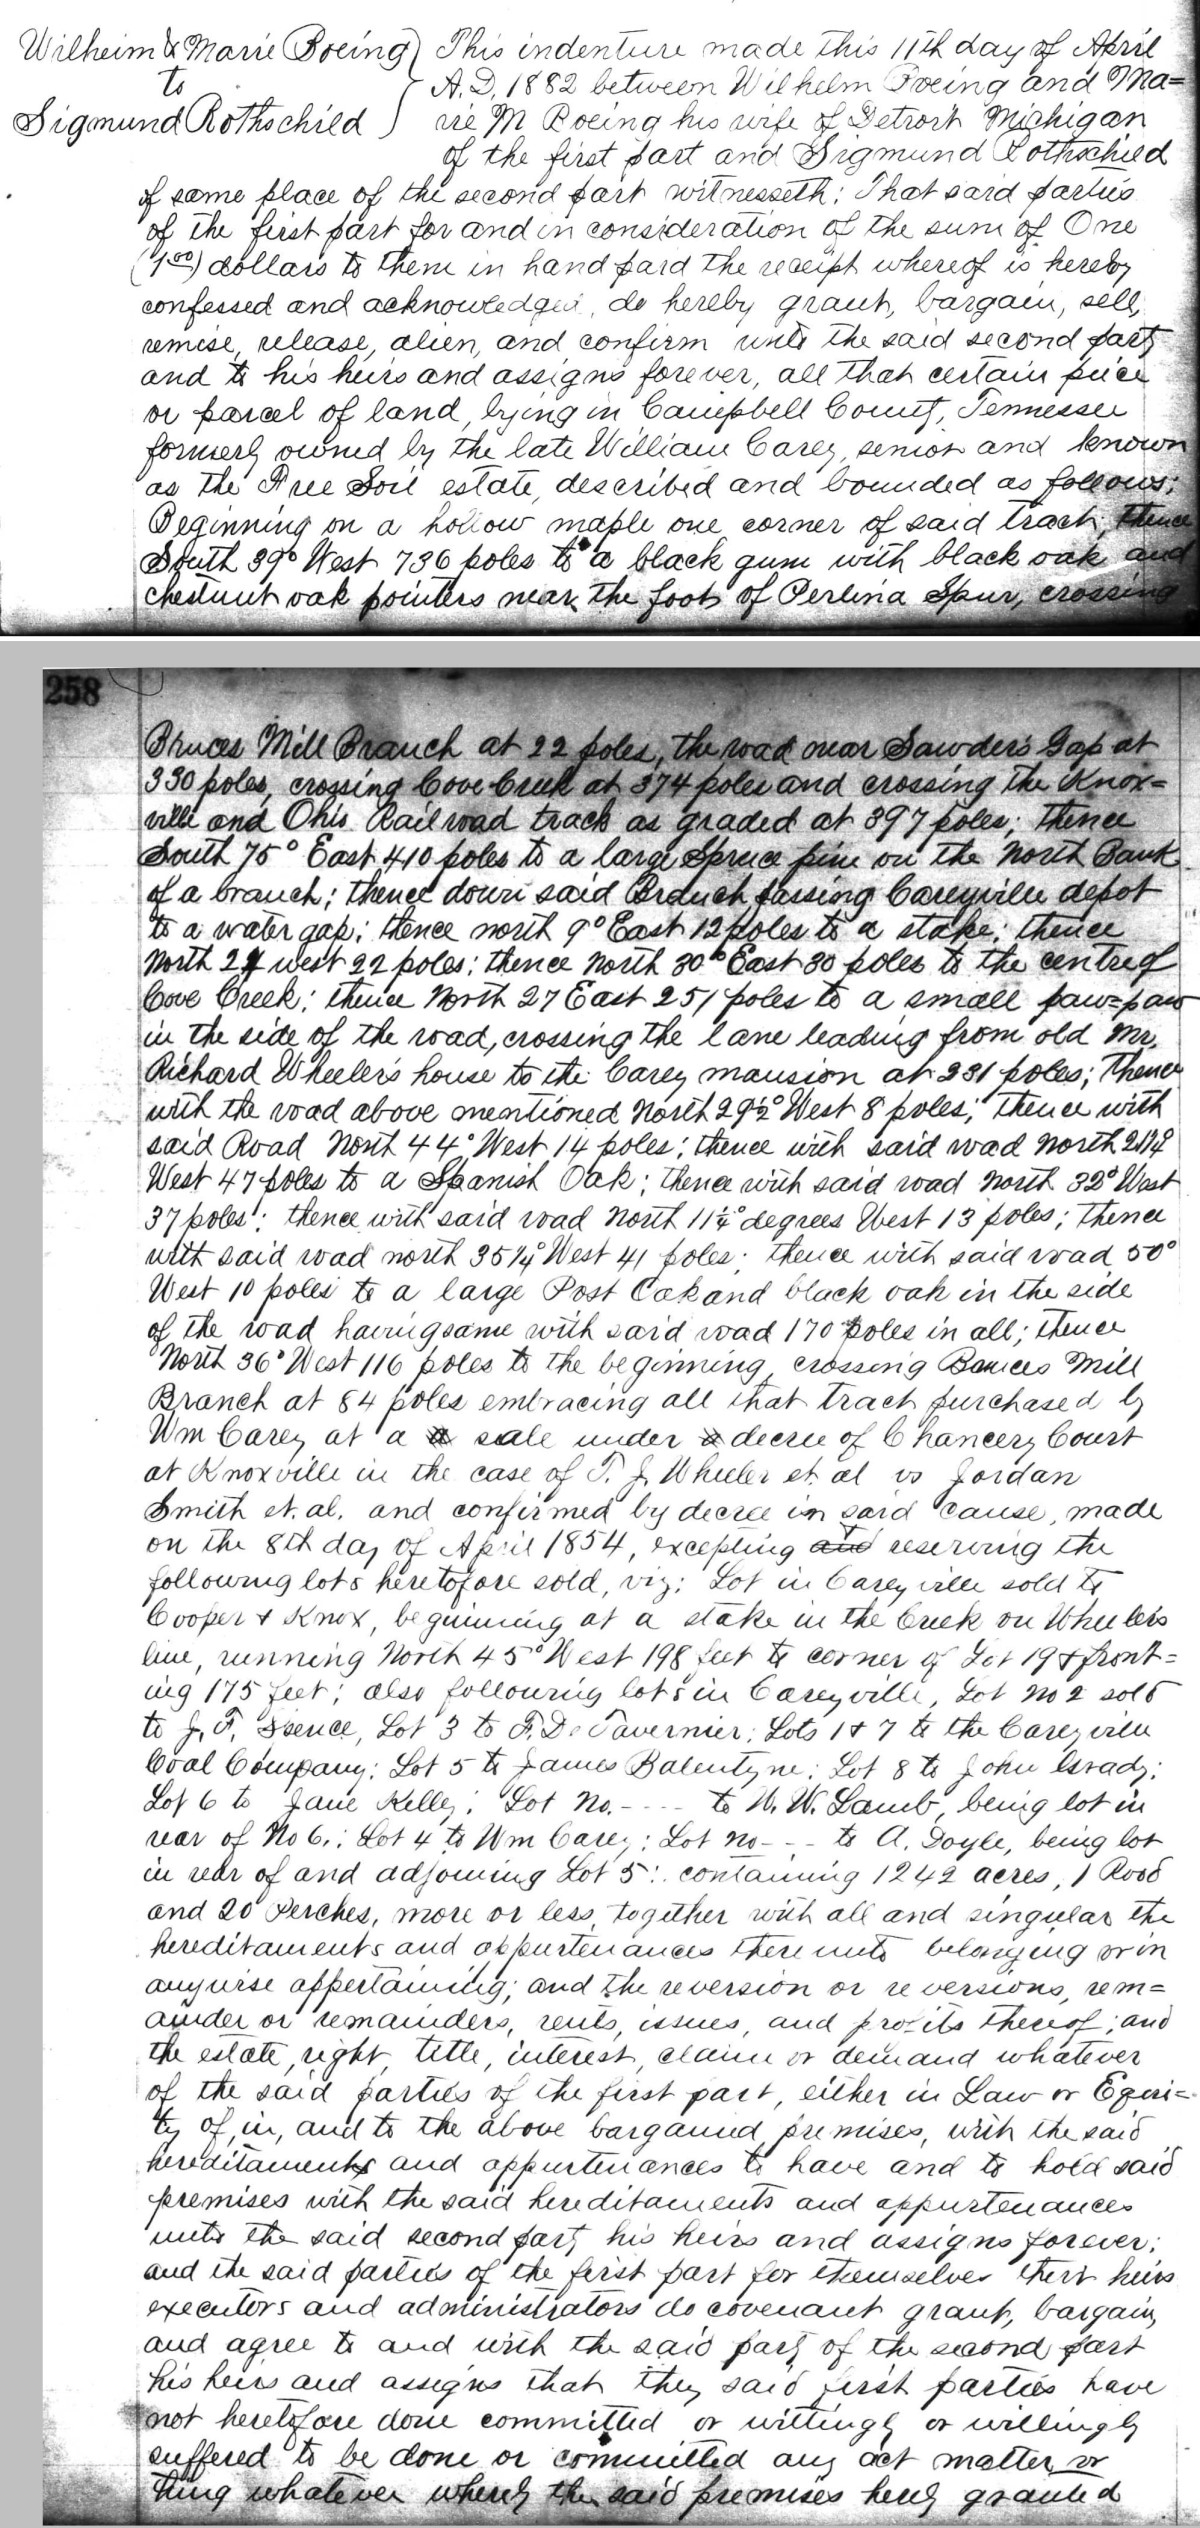 Wilheim & Marie Boeing
to
Sigmund Rothschild
This indenture made this 11th day of April
A.D. 1882 between Wilhelm Boeing and Ma=
rie M Boeing his wife of Detroit Michigan
of the first part and Sigmund Rothschild
of same place of the second part witnesseth: That said parties
of the first part for and in consideration of the sum of One
(1 00) dollars to them in hand paid the receipt whereof is hereby
confessed and acknowledged, do hereby grant, bargain, sell,
remise, release, alien, and confirm unto the said second party
and to his heirs and assigns forever, all that certain piece
or parcel of land, lying in Campbell County, Tennessee
formerly owned by the late William Carey, senior and known
as the Free Soil estate, described and bounded as follows;
Beginning on a hollow maple one corner of said track, thence
South 39° West 736 poles to a black gum with black oak and
chestnut oak pointers near the foot of Perlina Spur, crossing
258
Bruces Mill Branch at 22 poles, the road near Sawders Gap at
330 poles, crossing Cove Creek at 374 poles and crossing the Knox=
ville and Ohio Railroad track as graded at 397 poles; thence
South 75° East 410 poles to a large Spruce pine on the North Bank
of a branch; thence down said Branch passing Careyville depot
to a water gap; thence north 9° East 12 poles to a stake; thence
North 24 west 22 poles; thence North 30° East 30 poles to the centre of
Cove Creek; thence North 27 East 251 poles to a small paw=paw
in the side of the road, crossing the lane leading from old Mr.
Richard Wheeler's house to the Carey mansion at 231 poles; thence
with the road above mentioned North 29½° West 8 poles; thence with
said Road North 44° West 14 poles; thence with said road North
West 47 poles to a Spanish Oak; thence with said road North 32° West
37 poles; thence with said road North 11¼° degrees West 13 poles; thence
with said road north 35¼° West 41 poles; thence with said road 50°
West 10 poles to a large Post Oak and black oak in the side
of the road having same with said road 170 poles in all; thence
North 36° West 116 poles to the beginning, crossing Bruces Mill
Branch at 84 poles embracing all that tract purchased by
Wm Carey at a sale under decree of Chancery Court
at Knoxville in the case of T. J. Wheeler et. al vs Jordan
Smith et. al. and confirmed by decree in said cause, made
on the 8th day of April 1854, excepting and reserving the
following lots heretofore sold, viz: Lot in Careyville sold to
Cooper & Knox, beginning at a stake in the Creek on Wheelers
line, running North 45° West 198 feet to corner of Lot 19 & front=
ing 175 feet; also following lots in Careyville, Lot No 2 sold
to J. F. Spence, Lot 3 to F. D. Tavernier; Lots 1 & 7 to the Careyville
Coal Company; Lot 5 to James Balentyne; Lot 8 to John Grady;
Lot 6 to Jane Kelly; Lot No. - - - - to W. W. Lamb, being lot in
rear of No 6.; Lot 4 to Wm Carey; Lot no - - - to A. Doyle, being lot
in rear of and adjoining Lot 5: containing 1242 acres, 1 Rood
and 20 Perches, more or less, together with all and singular the
hereditaments and appurtenances thereunto belonging or in
anywise appertaining; and the reversion or reversions, rem=
ainder or remainders, rents, issues, and profits thereof; and
the estate, right, title, interest, claim or demand whatever
of the said parties of the first part, either in Law or Equi=
ty of, in, and to the above bargained premises, with the said
hereditaments and appurtenances to have and to hold said
premises with the said hereditaments and appurtenances
unto the said second party his heirs and assigns forever;
and the said parties of the first part for themselves their heirs
executors and administrators do covenant grant, bargain,
and agree to and with the said party of the second part
his heirs and assigns that they said first parties have
not heretofore done committed or wittingly or willingly
suffered to be done or committed any act matter or
thing whatever whereby the said premises hereby granted